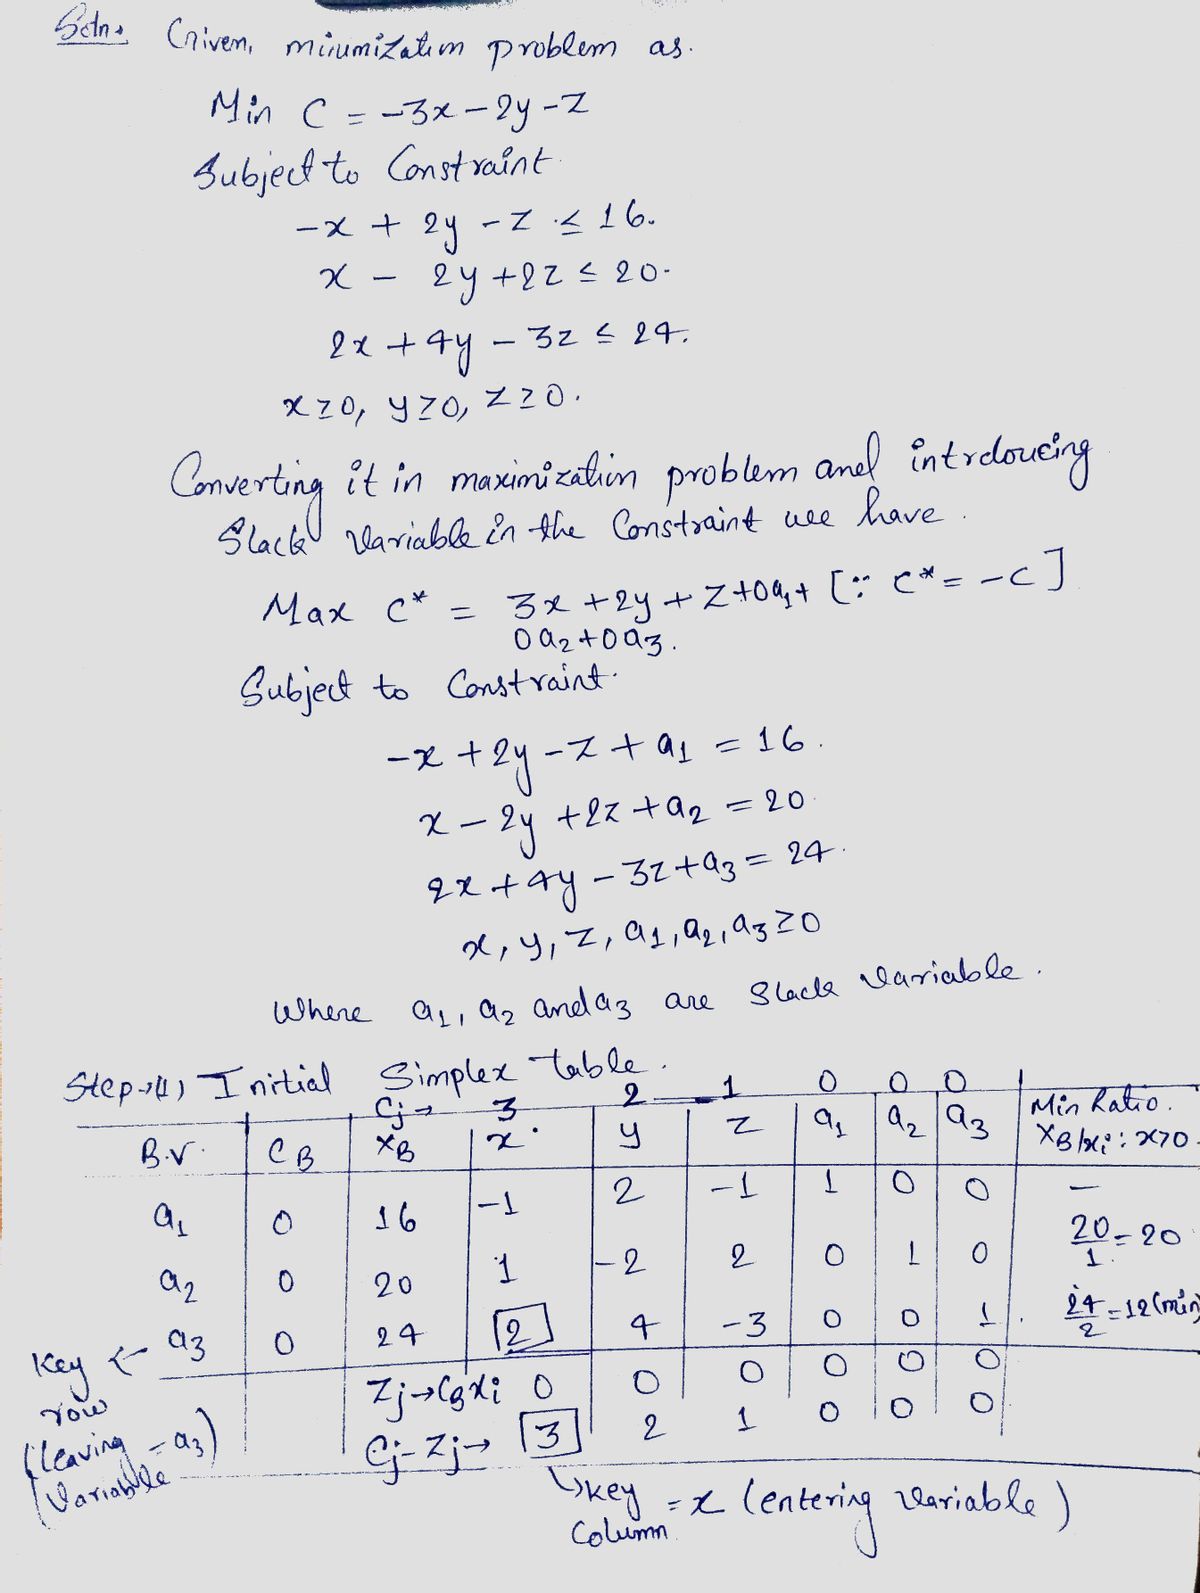 Soln. Given, minimization problem as.
Min C = -3x - 2y - z
Subject to Constraint.
-x + 2y - z ≤ 16.
x - 2y + 2z ≤ 20.
2x + 4y - 3z ≤ 24.
x ≥ 0, y ≥ 0, z ≥ 0.
Converting it in maximization problem and introducing
Slack Variable in the Constraint we have.
Max C* = 3x + 2y + z + 0a1 + [∵ C* = -C]
0a2 + 0a3.
Subject to Constraint.
-x + 2y - z + a1 = 16.
x - 2y + 2z + a2 = 20.
2x + 4y - 3z + a3 = 24.
x, y, z, a1, a2, a3 ≥ 0
Where a1, a2 and a3 are Slack Variable.
Step→(1) Initial Simplex table.
Cj→ 3 2 1 0 0 0
B.V. CB XB x y z a1 a2 a3 Min Ratio. XB/xi : x>0.
a1 0 16 -1 2 -1 1 0 0 —
a2 0 20 1 -2 2 0 1 0 20/1 = 20
Key ← a3 0 24 2 4 -3 0 0 1 24/2 = 12 (min)
row Zj→CBxi 0 0 0 0 0 0
(leaving Variable = a3) Cj-Zj→ 3 2 1 0 0 0
↳ key = x (entering variable)
Column